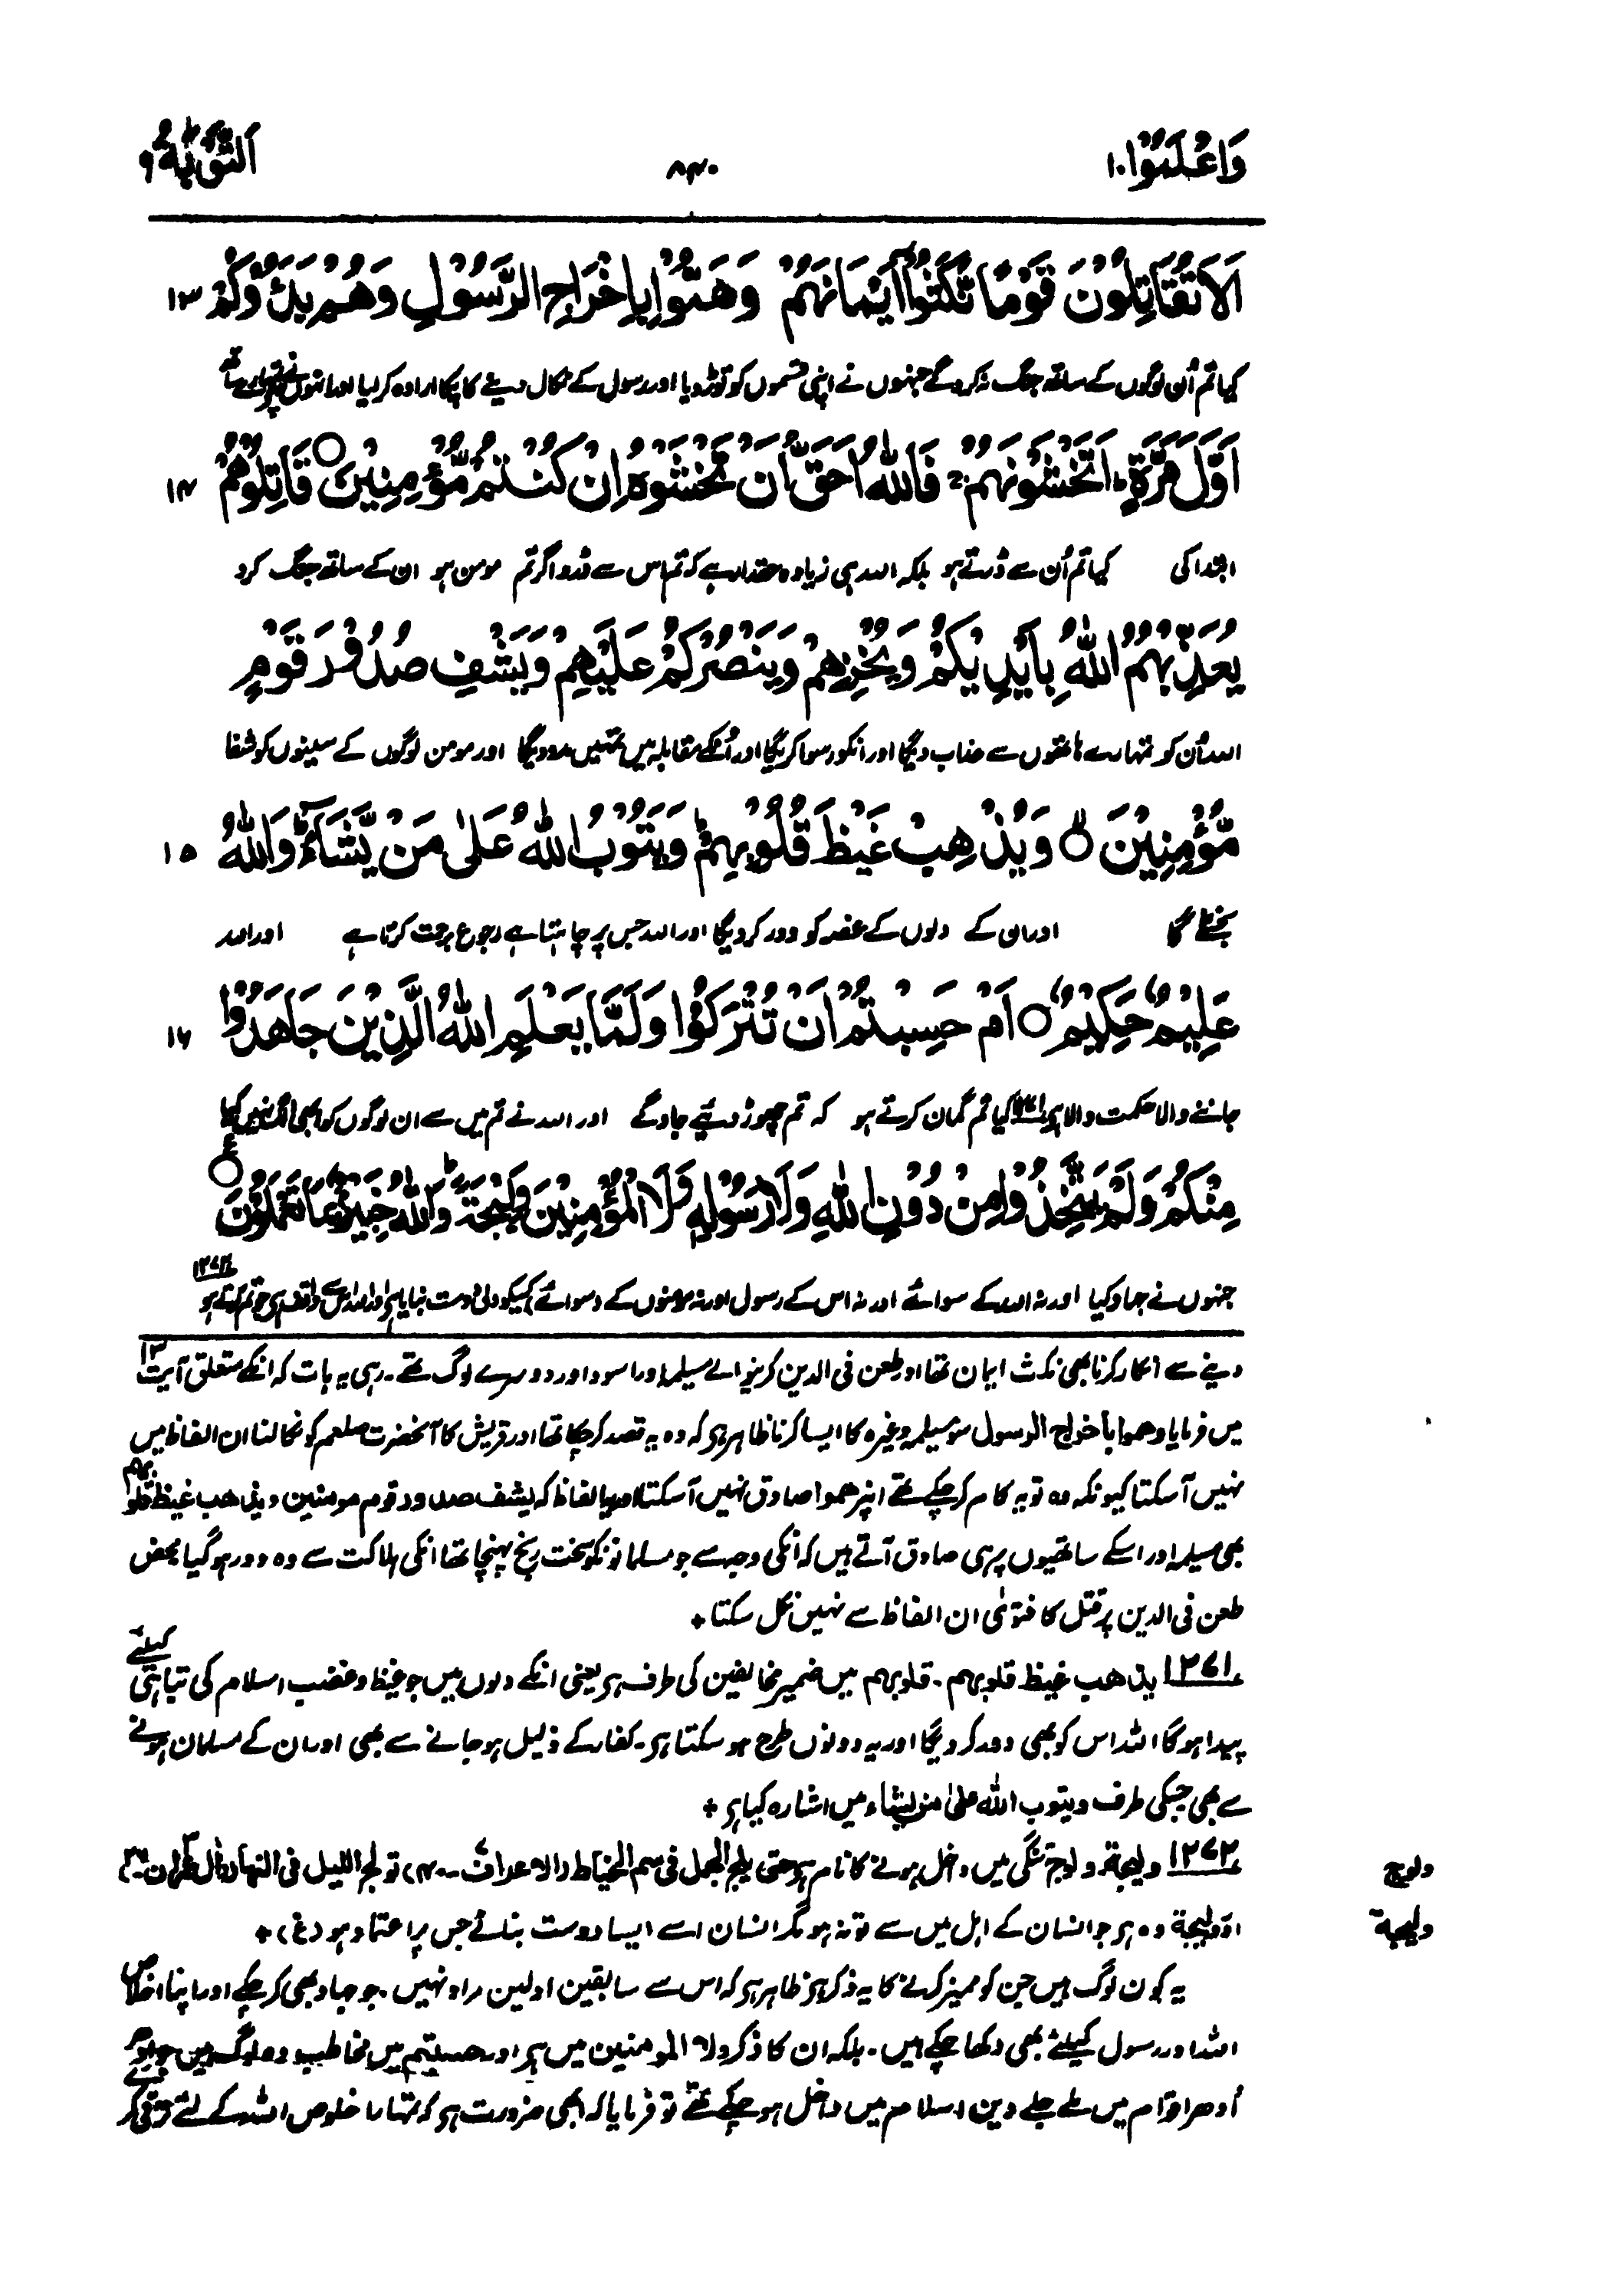 وَاعْلَمُوْا ١٠
٨٤٠
اَلتَّوْبَةُ ٩
اَلَا تُقَاتِلُوْنَ قَوْمًا نَّكَثُوْٓا اَيْمَانَهُمْ وَهَمُّوْا بِاِخْرَاجِ الرَّسُوْلِ وَهُمْ بَدَءُوْكُمْ ١٣
کیا تم اُن لوگوں کے ساتھ جنگ نہ کروگے جنہوں نے اپنی قسموں کو توڑ دیا اور رسول کے نکال دینے کا پکا ارادہ کر لیا اور انہوں نے تمہارے ساتھ
اَوَّلَ مَرَّةٍ ؕ اَتَخْشَوْنَهُمْ ۚ فَاللّٰهُ اَحَقُّ اَنْ تَخْشَوْهُ اِنْ كُنْتُمْ مُّؤْمِنِيْنَ ○ قَاتِلُوْهُمْ ١٤
ابتدا کی کیا تم اُن سے ڈرتے ہو بلکہ اللہ ہی زیادہ حقدار ہے کہ تم اس سے ڈرو اگر تم مومن ہو ان کے ساتھ جنگ کرو
يُعَذِّبْهُمُ اللّٰهُ بِاَيْدِيْكُمْ وَيُخْزِهِمْ وَيَنْصُرْكُمْ عَلَيْهِمْ وَيَشْفِ صُدُوْرَ قَوْمٍ
اللہ اُن کو تمہارے ہاتھوں سے عذاب دیگا اور انکو رسوا کریگا اور اُنکے مقابلہ میں تمہیں مدد دیگا اور مومن لوگوں کے سینوں کو شفا
مُّؤْمِنِيْنَ ○ۙ وَيُذْهِبْ غَيْظَ قُلُوْبِهِمْ ؕ وَيَتُوْبُ اللّٰهُ عَلٰى مَنْ يَّشَآءُ ؕ وَاللّٰهُ ١٥
بخشے گا اور ان کے دلوں کے غصہ کو دور کر دیگا اور اللہ جس پر چاہتا ہے رجوع برحمت کرتا ہے اور اللہ
عَلِيْمٌ حَكِيْمٌ ○ اَمْ حَسِبْتُمْ اَنْ تُتْرَكُوْا وَلَمَّا يَعْلَمِ اللّٰهُ الَّذِيْنَ جَاهَدُوْا ١٦
جاننے والا حکمت والا ہے ١٢٧١ کیا تم گمان کرتے ہو کہ تم چھوڑ دیئے جاؤگے اور اللہ نے تم میں سے ان لوگوں کو ابھی الگ نہیں کیا
مِنْكُمْ وَلَمْ يَتَّخِذُوْا مِنْ دُوْنِ اللّٰهِ وَلَا رَسُوْلِهٖ وَلَا الْمُؤْمِنِيْنَ وَلِيْجَةً ؕ وَاللّٰهُ خَبِيْرٌۢ بِمَا تَعْمَلُوْنَ ○ ع
جنہوں نے جہاد کیا اور نہ اللہ کے سوائے اور نہ اس کے رسول اور نہ مومنوں کے (سوائے) کسیکو دلی دوست بنایا ہے اور اللہ اس سے واقف ہے جو تم کرتے ہو ١٢٧٢
دینے سے انکار کرنا بھی نکث ایمان تھا اور طعن فی الدین کرنیوالے مسیلمہ اور اسود اور دوسرے لوگ تھے۔ رہی یہ بات کہ انکے متعلق آیت ١٣
میں فرمایا وھموا باخراج الرسول سو مسیلمہ وغیرہ کا ایسا کرنا ظاہر ہے کہ وہ یہ قصد کر چکا تھا اور قریش کا آنحضرت صلعم کو نکالنا ان الفاظ میں
نہیں آ سکتا کیونکہ وہ تو یہ کام کر چکے تھے انپر ھموا صادق نہیں آ سکتا اور یہ الفاظ کہ یشف صدور قوم مومنین ویذھب غیظ قلوبھم
بھی مسیلمہ اور اسکے ساتھیوں پر ہی صادق آتے ہیں کہ انکی وجہ سے جو مسلمانونکو سخت رنج پہنچا تھا انکی ہلاکت سے وہ دور ہو گیا۔ محض
طعن فی الدین پر قتل کا فتوٰی ان الفاظ سے نہیں نکل سکتا ۔
١٢٧١ یذھب غیظ قلوبھم۔ قلوبھم میں ضمیر مخالفین کی طرف ہے یعنی انکے دلوں میں جو غیظ و غضب اسلام کی تباہی کیلئے
پیدا ہوگا اللہ اس کو بھی دور کر دیگا اور یہ دونوں طرح ہو سکتا ہے۔ کفار کے ذلیل ہو جانے سے بھی اور ان کے مسلمان ہونے
سے بھی جسکی طرف ویتوب اللہ علیٰ من یشاء میں اشارہ کیا ہے ۔
ولوج
١٢٧٢ ولیجة۔ ولوج تنگی میں داخل ہونے کا نام ہے حتی یلج الجمل فی سم الخیاط (الاعراف - ٤٠) تولج اللیل فی النھار (اٰل عمران - ٢٦)
ولیجة
اور ولیجة وہ ہے جو انسان کے اہل میں سے تو نہ ہو مگر انسان اسے ایسا دوست بنائے جس پر اعتماد ہو (غ) ۔
یہ کون لوگ ہیں جن کو ممیز کرنے کا یہ ذکر ہے ظاہر ہے کہ اس سے سابقین اولین مراد نہیں۔ جو جہاد بھی کر چکے اور اپنا اخلاص
اللہ اور رسول کیلئے بھی دکھا چکے ہیں۔ بلکہ ان کا ذکر ولا المومنین میں ہے اور حسبتم میں مخاطب وہ لوگ ہیں جو
اُدھر اقوام میں ملے جلے دین اسلام میں داخل ہو چکے تھے تو فرمایا کہ ابھی ضرورت ہے کہ تمہارا خلوص اللہ کے لئے ترقی کر